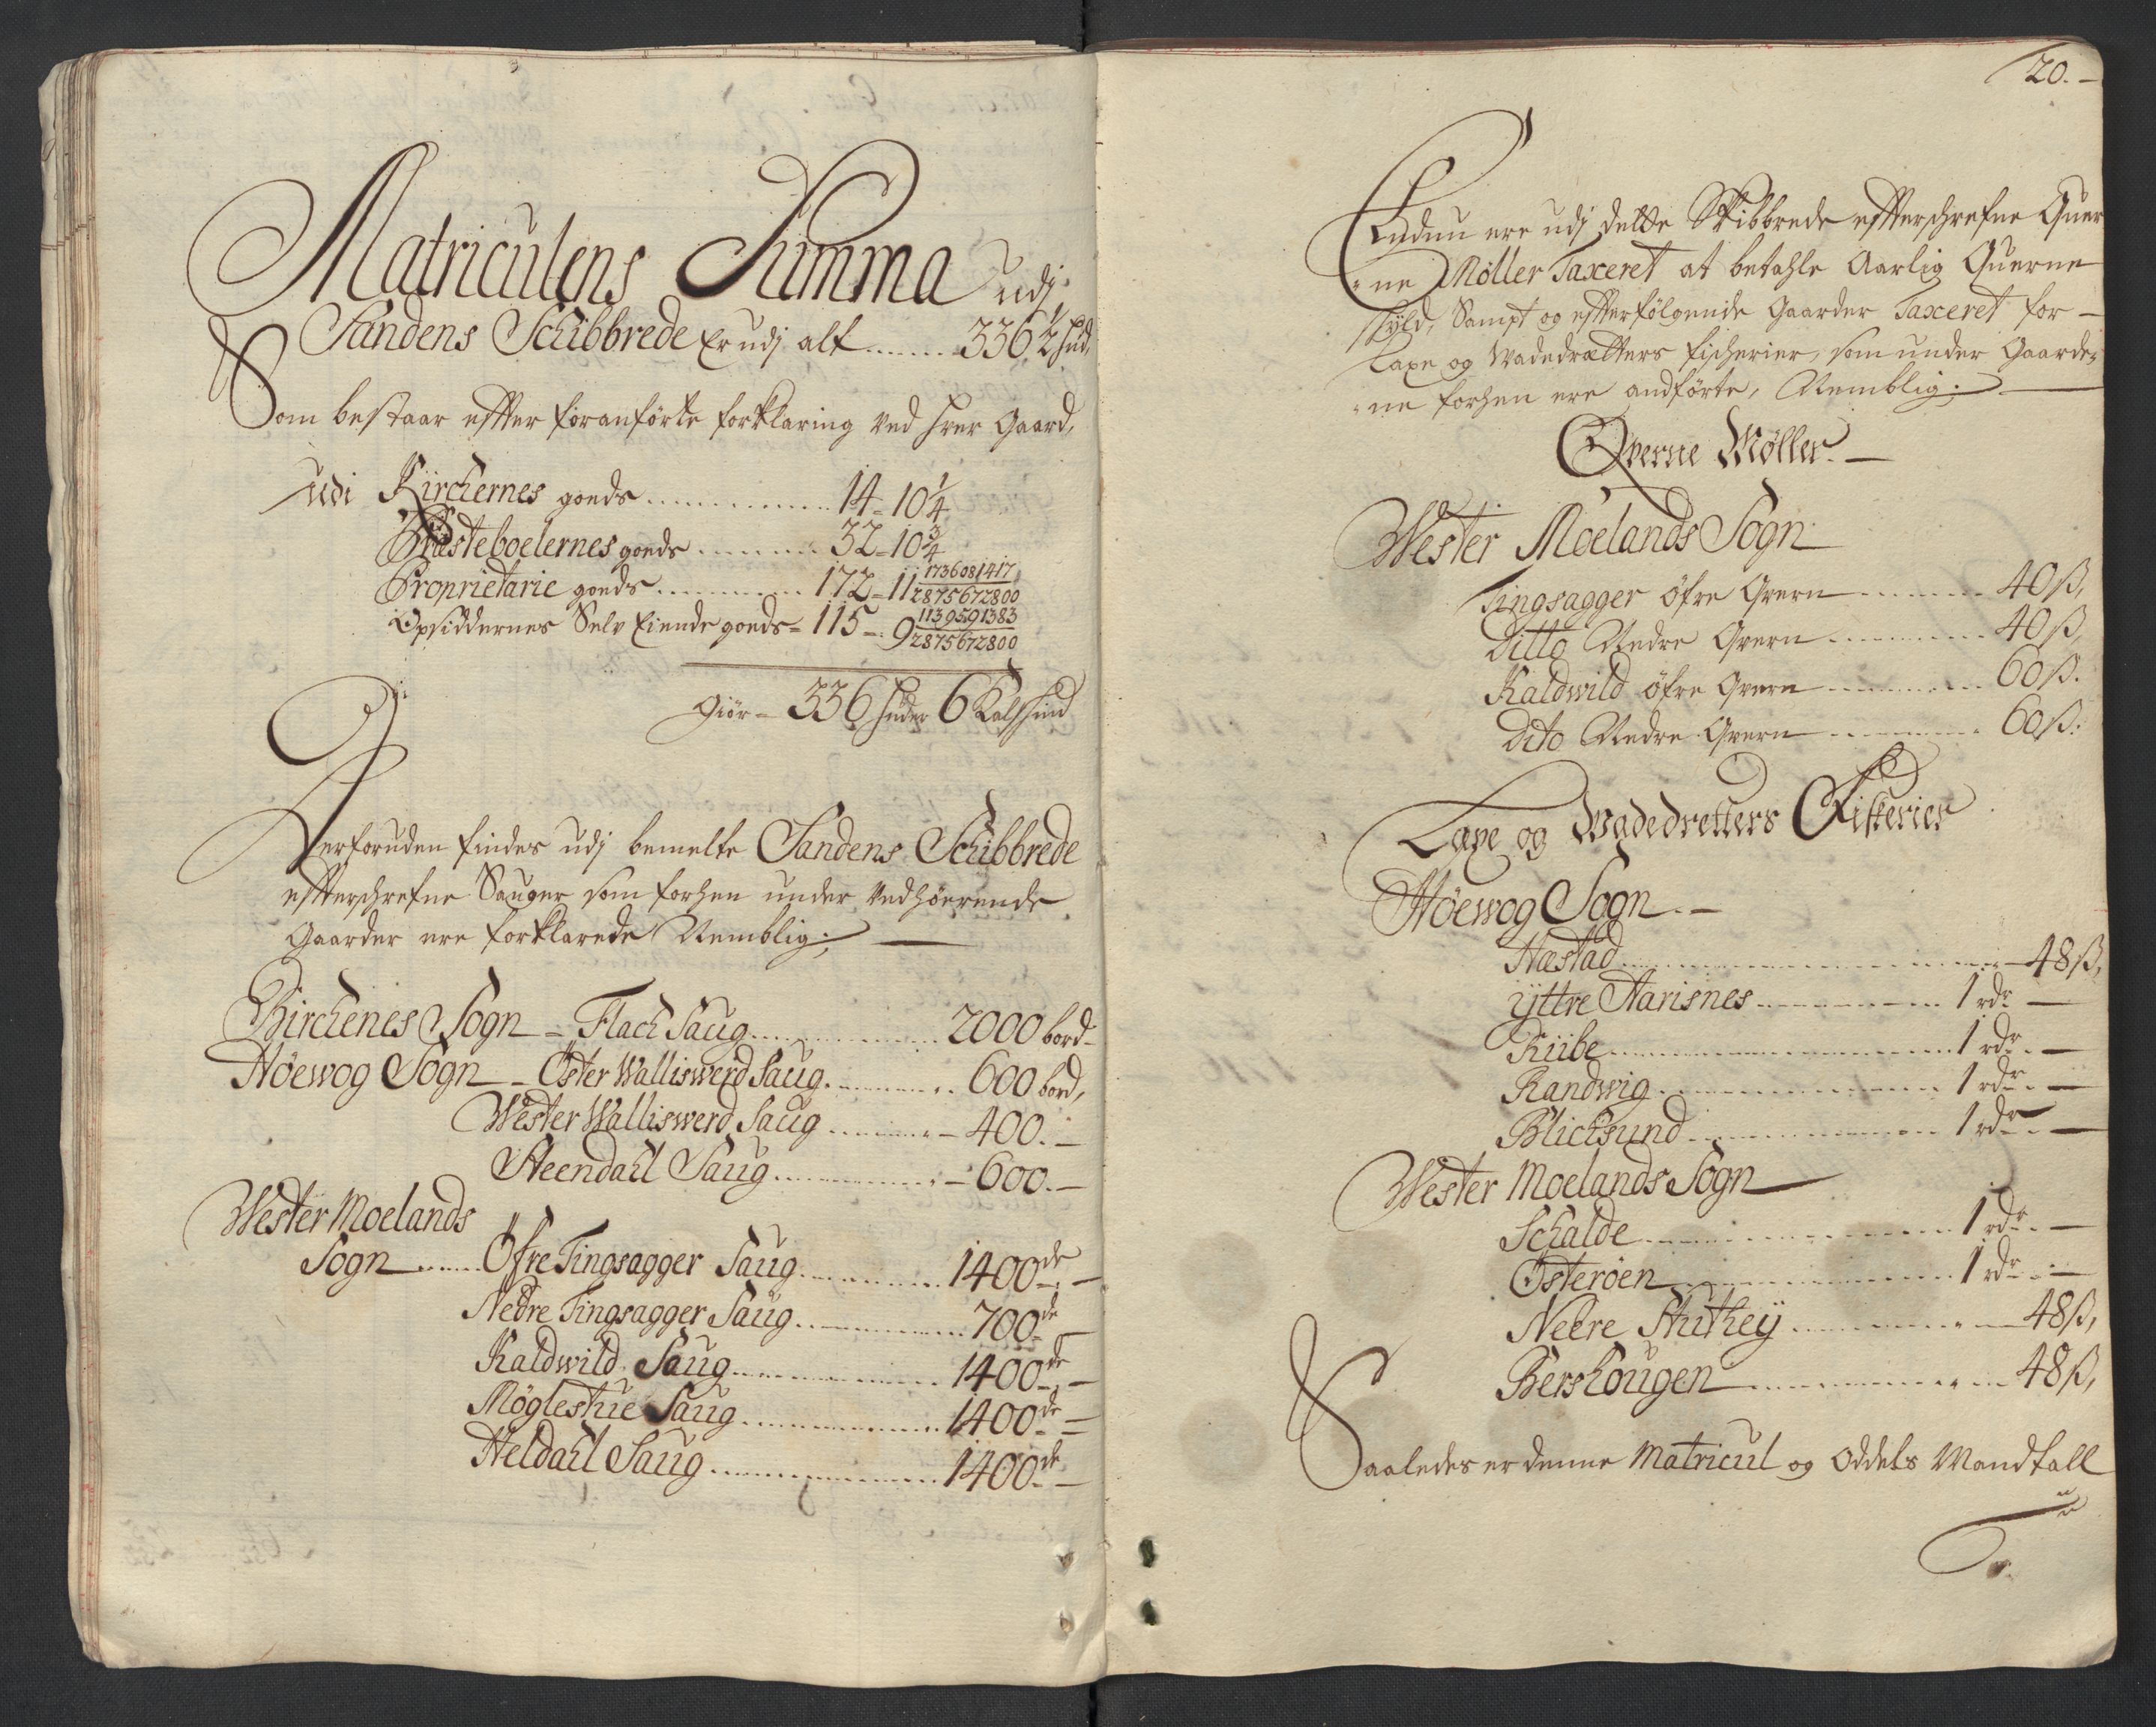 Matriculens Summa udj
Sandens Schibbrede Er udj alt ....... 336½ hud,
Som bestaar effter foranförte forklaring ved hver Gaard,
udi Kirchernes goeds ............. 14 - 10¼
Præsteboelernes goeds ......... 32 - 10¾
Proprietarie goeds ........... 172 - 11 1736081417/2875672800
Opsiddernes Selv Eiende goeds - 115 - 9 1139591383/2875672800
Giör - 336 huder 6 Kalfshind
Derforuden findes udj bemelte Sandens Schibbrede
effterschrefne Sauger som forhen under vedhörende
Gaarder ere forklarede Nemblig;
Birchenes Sogn - Flach Saug ............. 2000 bord -
Höewog Sogn - Öster Walliswerd Saug ......... 600 bord,
Wester Walliswerd Saug ......... 400. -
Steendahl Saug ........... 600. -
Wester Moelands
Sogn ...... Öfre Tingsagger Saug ........... 1400 de -
Nedre Tingsagger Saug ............ 700 de -
Kaldwild Saug ............... 1400 de -
Möglestue Saug ............. 1400 de -
Heldahl Saug .............. 1400 de -
20. -
Endnu ere udj dette Skibbrede effterschrefne Quer
- ne Møller Taxeret at betahle Aarlig Querne
skyld, Sampt og effterfölgende Gaarder Taxeret for -
Laxe og Wadedrætters fischerier, som under Gaarde-
- ne forhen ere andförte, Nemblig; -
Qverne Møller. -
Wester Moelands Sogn
Tingsagger öfre Qvern ........ 40 ß,
Ditto Nedre Qvern .......... 40 ß,
Kaldwild öfre Qvern .......... 60 ß.
Dito Nedre Qvern .......... 60 ß.
Laxe og Wadedretters Fiskerier
Höewog Sogn. -
Hæstad .................. 48 ß,
ÿttre Aarisnes ............ 1 rdr -
Kiibe ................... 1 rdr. -
Randwig ................ 1 rdr. -
Blichsund .............. 1 rdr. -
Wester Moelands Sogn
Schalde ................ 1 rdr. -
Österöen ............... 1 rdr. -
Nedre Huthey ............ 48 ß,
Bershougen ............. 48 ß,
Saaledes er denne Matricul og Oddels Mandtall